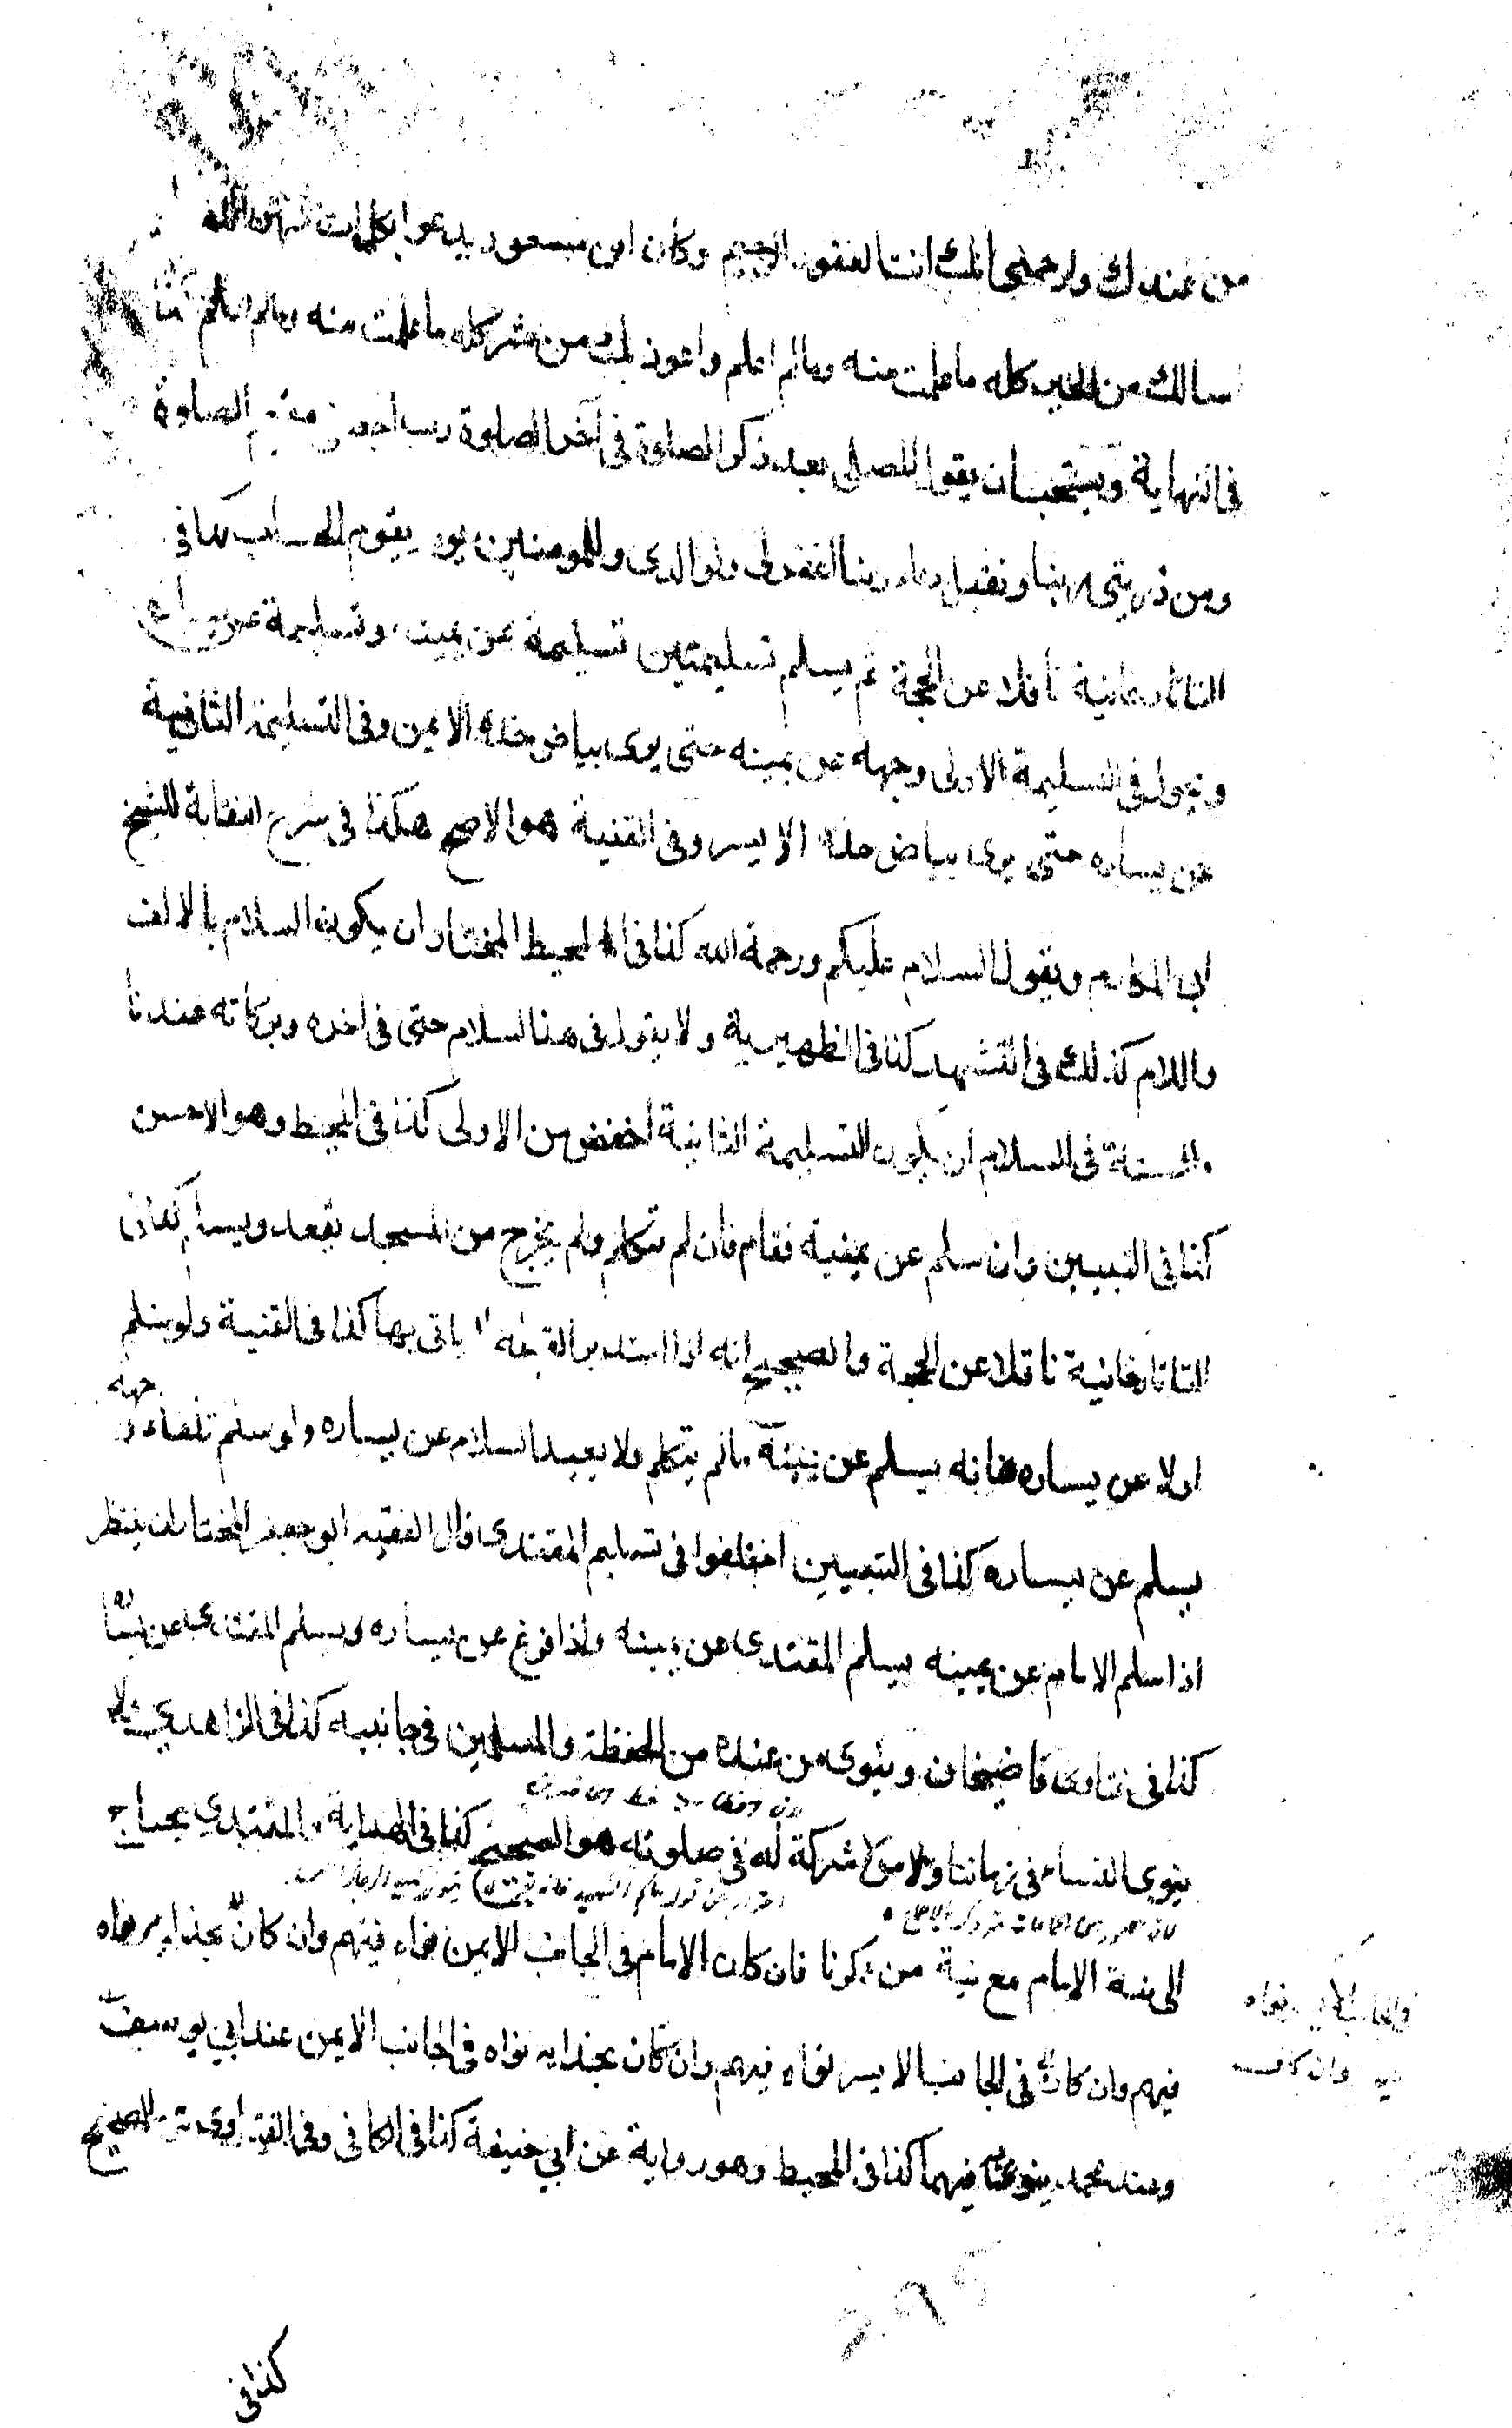 من عندك وارحمني انك انت الغفور الرحيم وكان ابن مسعود يدعوا بكلمات اللهم انى
اسالك من الخير كله ما علمت منه وما لم اعلم واعوذ بك من شر كله ما علمت منه وما لم اعلم كذا
فى النهاية ويستحب ان يقول المصلى بعد ذكر الصلوة فى آخر الصلوة رب اجعلنى مقيم الصلوة
ومن ذريتى ربنا وتقبل دعاء ربنا اغفر لى ولوالدى وللمومنين يوم يقوم الحساب كذا فى
التاتارخانية ناقلا عن الحجة ثم يسلم تسليمتين تسليمة عن يمينه وتسليمة عن يساره
ويحول فى التسليمة الاولى وجهه عن يمينه حتى يرى بياض خده الايمن وفى التسليمة الثانية
عن يساره حتى يرى بياض خده الايسر وفى القنية هو الاصح هكذا فى شرح النقاية للشيخ
ابى المكارم ويقول السلام عليكم ورحمة الله كذا فى المحيط المختار ان يكون السلام بالالف
واللام كذلك فى التشهد كذا فى الظهيرية ولا يقول فى هذا السلام حتى فى اخره وبركاته عندنا
والسنة فى السلام ان يكون التسليمة الثانية اخفض من الاولى كذا فى المحيط وهو الاحسن
كذا فى التبيين وان سلم عن يمينه فقام فان لم يتكلم ولم يخرج من المسجد يقعد ويسلم كذا فى
التاتارخانية ناقلا عن الحجة والصحيح انه اذا استدبر القبلة لا ياتى بها كذا فى القنية ولو سلم
اولا عن يساره فانه يسلم عن يمينه ما لم يتكلم ولا يعيد السلام عن يساره ولو سلم تلقاء وجهه
يسلم عن يساره كذا فى التبيين اختلفوا فى تسليم المقتدى قال الفقيه ابو جعفر المختار ان ينتظر
اذا سلم الامام عن يمينه يسلم المقتدى عن يمينه واذا فرغ عن يساره ويسلم المقتدى عن يساره
كذا فى فتاوى قاضيخان وينوى من عنده من الحفظة والمسلمين فى جانبيه كذا فى الزاهدى ولا
ينوى النساء فى زماننا ولا من لا شركة له فى صلوته هو الصحيح كذا فى الهداية والمقتدى يحتاج
الى نية الامام مع نية من ذكرنا فان كان الامام فى الجانب الايمن نواه فيهم وان كان بحذائه نواه
فيهم وان كان فى الجانب الايسر نواه فيهم وان كان بحذائه نواه فى الجانب الايمن عند ابي يوسف
وعند محمد ينوى فيهما كذا فى المحيط وهو رواية عن ابي حنيفة كذا فى الكافى وفى الفتاوى هو الصحيح
كذا فى